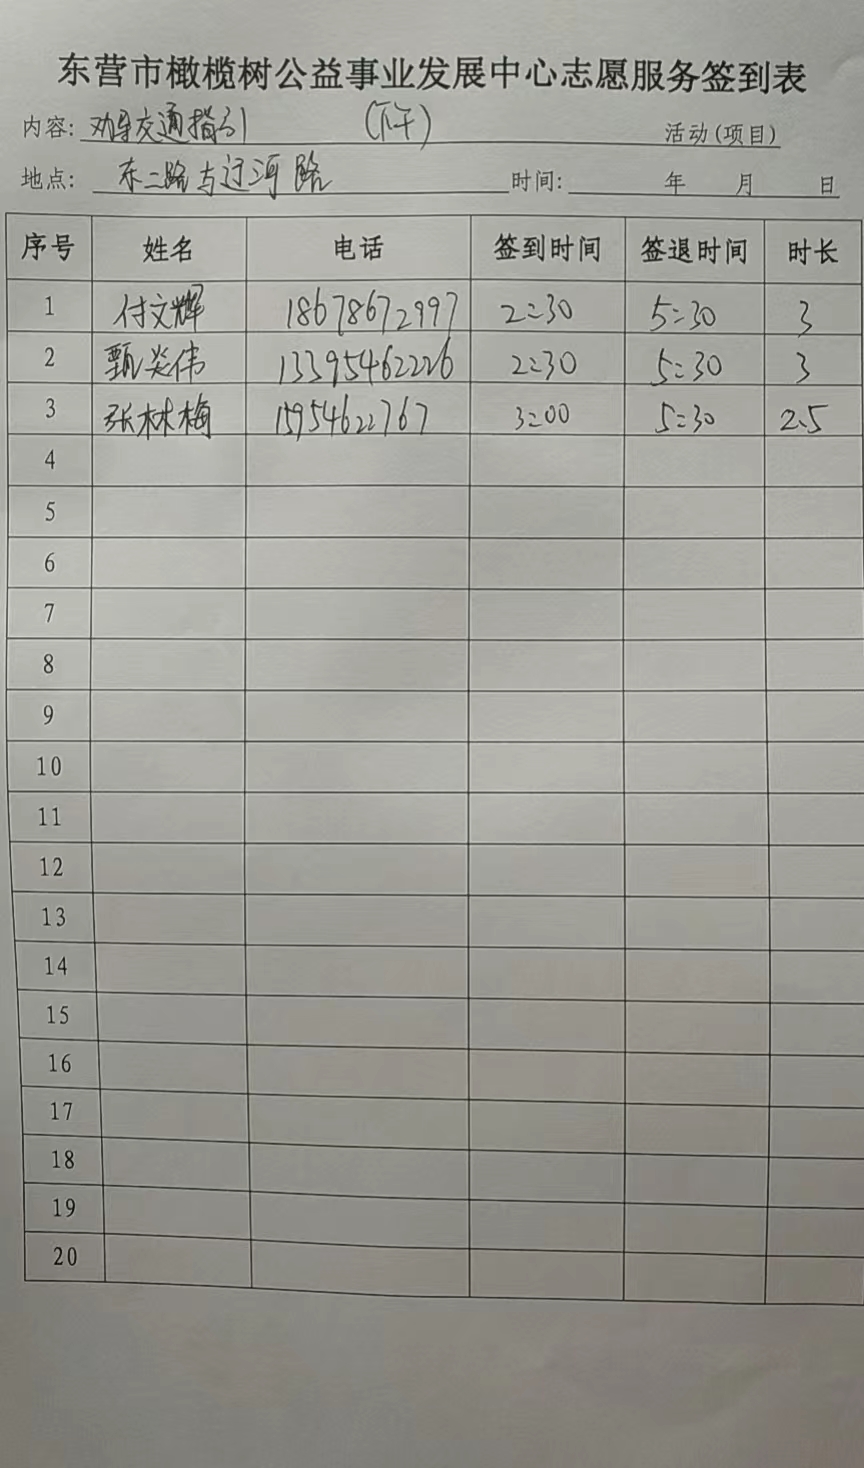 东营市橄榄树公益事业发展中心志愿服务签到表
内容: 劝导交通指引 (下午) 活动(项目)
地点: 东二路与辽河路 时间: 年 月 日
序号 姓名 电话 签到时间 签退时间 时长
1 付文辉 18678672997 2:30 5:30 3
2 甄炎伟 13395462226 2:30 5:30 3
3 张林梅 15954622767 3:00 5:30 2.5
4
5
6
7
8
9
10
11
12
13
14
15
16
17
18
19
20